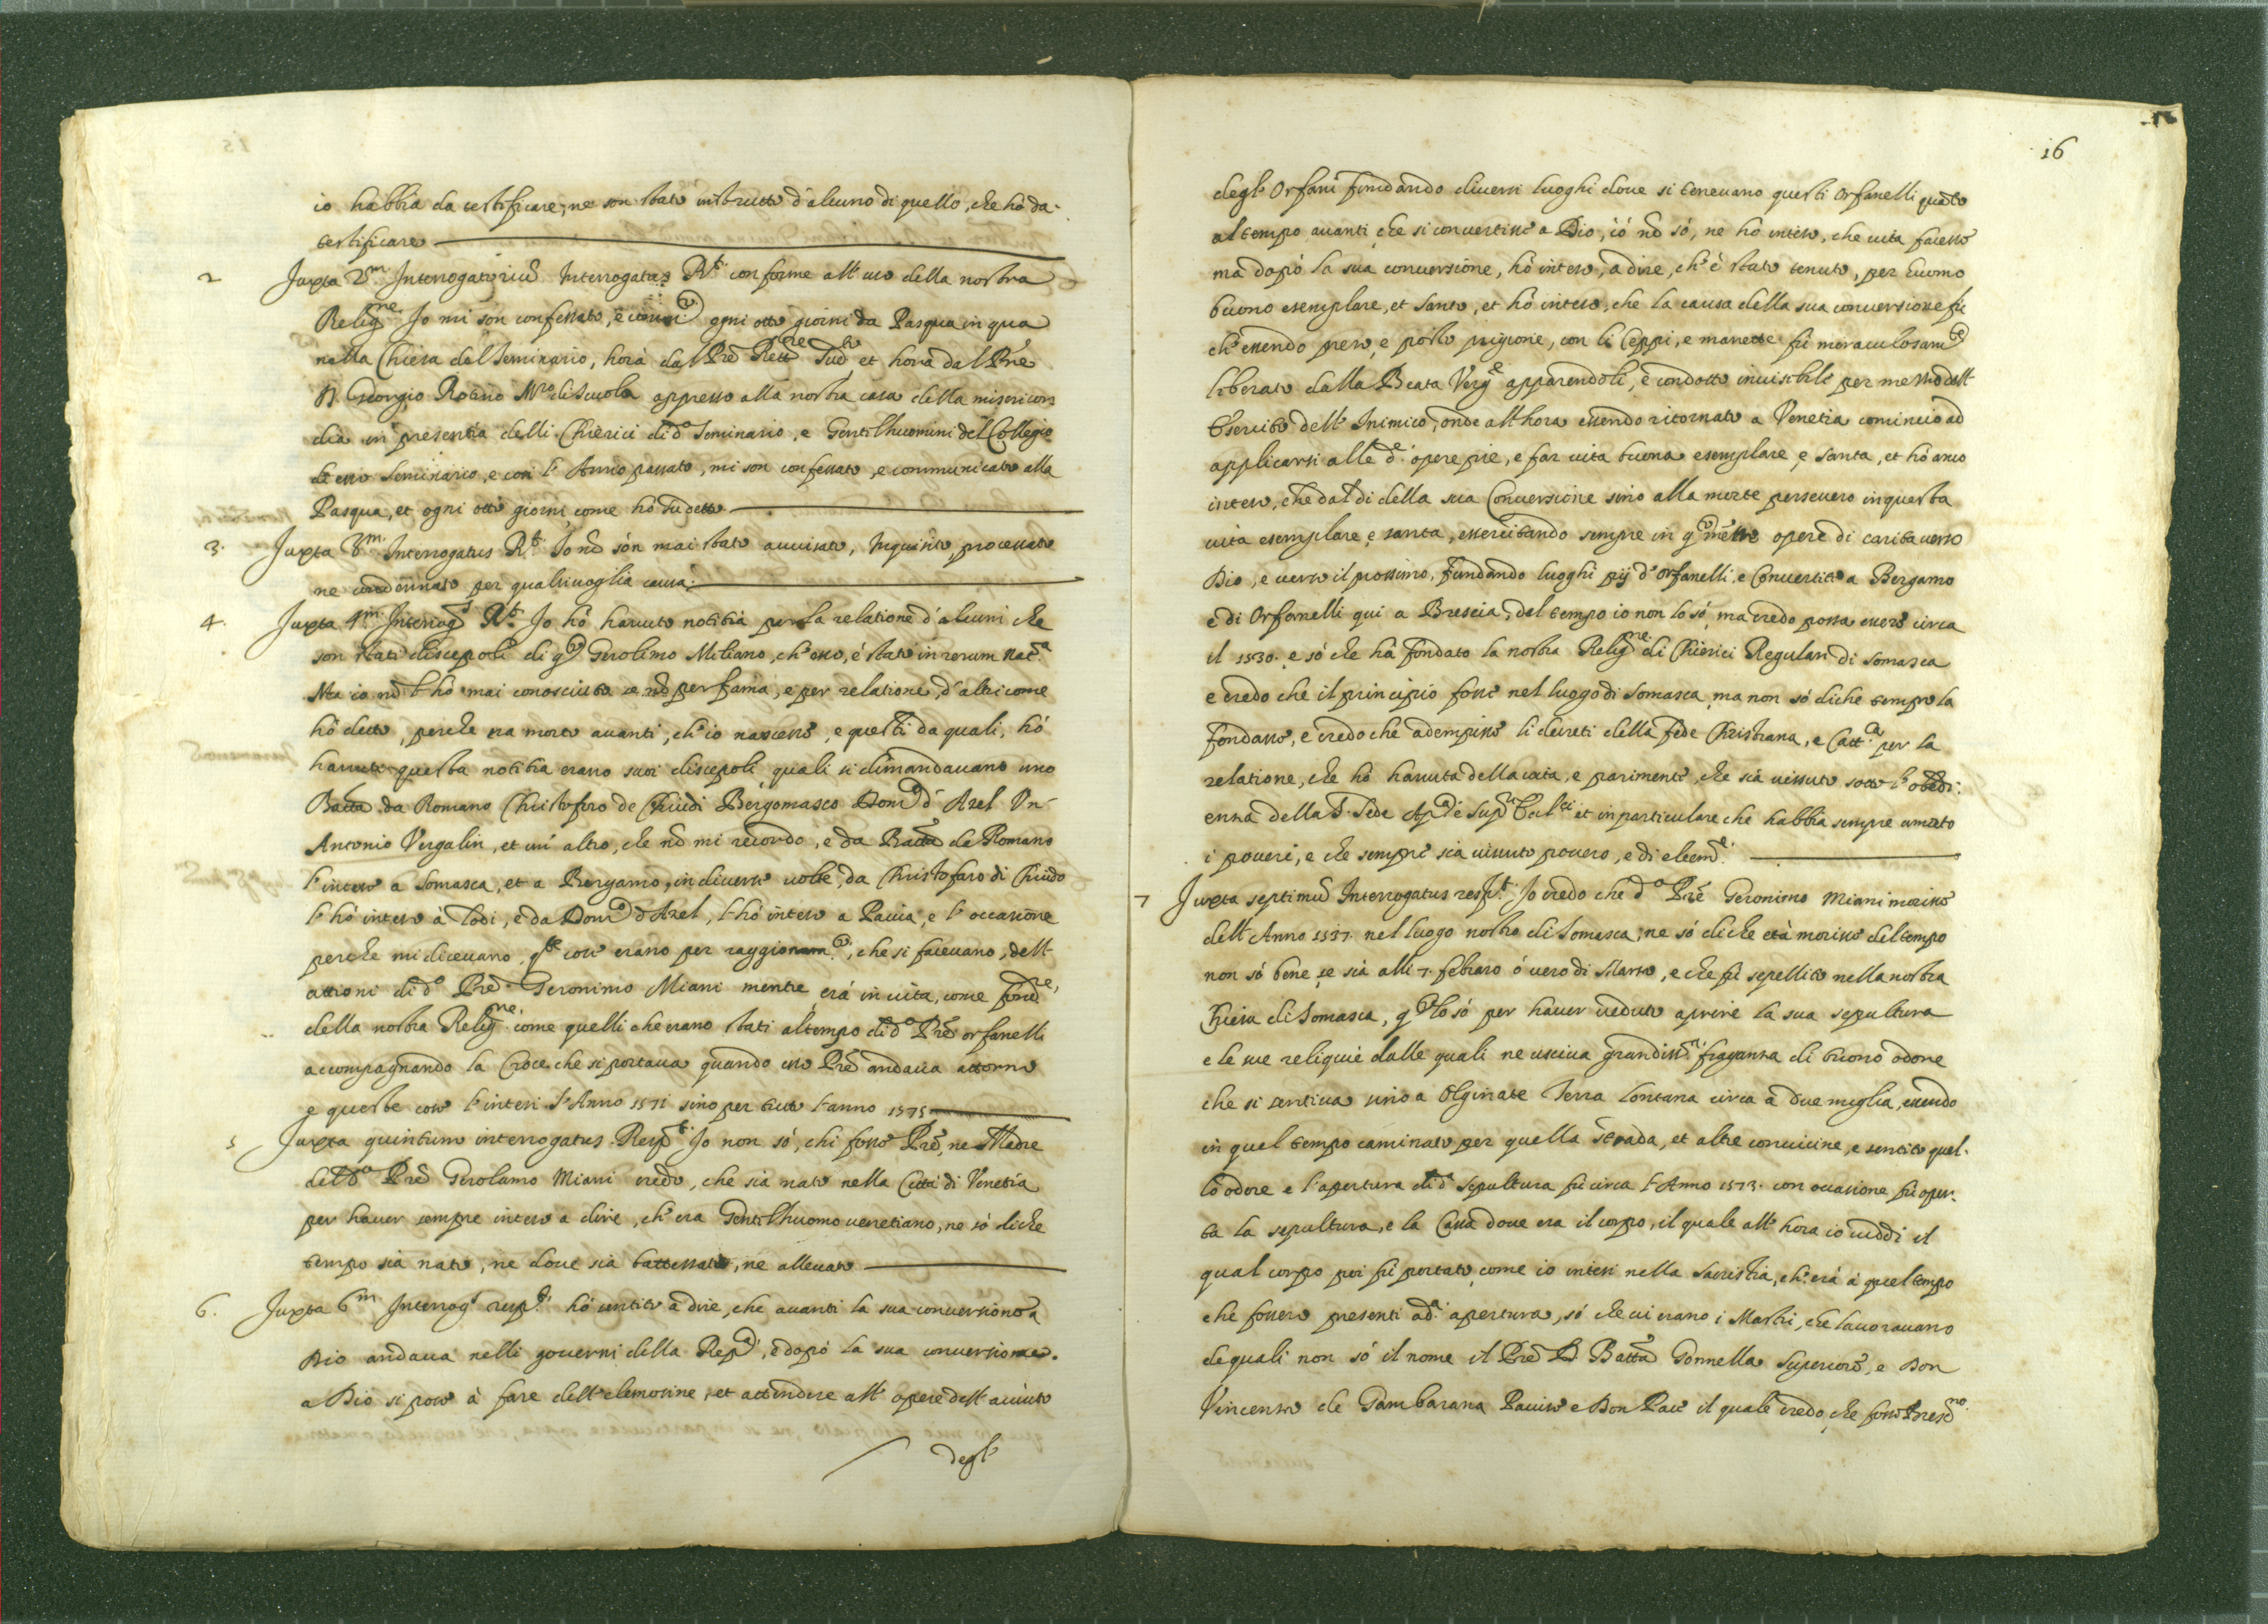 io habbia da testificare, ne son stato instrutto d'alcuno di quello, che hò da
testificare
2 Juxta 2m. Interrogatoriũ Interrogatus Rt. conforme all' uso della nostra
Religne. Jo mi son confessato, e ogni otto giorni da Pasqua in qua
nella Chiesa del Seminario, horà dal Prẽ Rettre Sudo et hora dal Prẽ
D. Georgio Rotino Mro di Scuola appresso alla nostra casa della misericor
dia in presentia delli Chierici di do Seminario, e Gentilhuomini del Collegio
de esso Seminario, e così l' Anno passato, mi son confessato, e communicato alla
Pasqua, et ogni otto giorni come hò Sudetto
3. Juxta 3m. Interrogatus Rt. Jo nõ són mai stato auuisato, Inquisito, processato
ne condennato per qualsiuoglia causa.
4. Juxta 4m. Interrogs Rt. Jo hò hauuto notitia per la relatione d'alcuni che
son stati discepoli di qo Gerolimo Miliano, ch' esso, è stato in rerum nata.
Ma io nõ l' hò mai conosciuto se nõ per fama, e per relatione, d'altri come
hò detto, perche era morto auanti, ch' io nascesse, e questi da quali, hò
hauuto questa notitia erano suoi discepoli quali si dimandauano uno
Batta da Romano Christoforo de Chiudi Bergomasco Domo d' Axel Vn
Antonio Vergalin, et un' altro, che nõ mi recordo, e da Batta de Romano
l' inteso a Somasca, et a Bergamo, in diuerse uolte, da Christofaro di Chiudo
l' hò inteso à Lodi, e da Domo d'Axel, l' hò inteso a Pauia, e l' occasione
perche mi diceuano, qte cose erano per raggionamti, che si faceuano, dell'
attioni di do Prẽ Geronimo Miani mentre erà in uita, come fondre,
della nostra Religne. come quelli che erano stati al tempo di do Prẽ orfanelli
accompagnando la Croce che si portaua quando esso Prẽ andaua attorno
e queste cose l' intesi l' Anno 1571 sino per tutto l' anno 1575
5 Juxta quintum interrogatus Respt. Jo non só, chi fosse Prẽ, ne Madre
del do Prẽ Gerolamo Miani credo, che sia nato nella Città di Venetia
per hauer sempre inteso a dire, ch' era Gentilhuomo uenetiano, ne só di che
tempo sia nato, ne doue sia battezzato, ne alleuato
6. Juxta 6m. Interrogs respt. hó sentito a dire, che auanti la sua conuersione a
Dio andaua nelli gouerni della Repa, e dopó la sua conuersione
a Dio si pose à fare dell' elemosine, et attendere all' opere dell' aiuto
degl'
16
degl' Orfani fundando diuersi luoghi doue si teneuano questi Orfanelli quanto
al tempo auanti che si conuertisse a Dio, ió nõ só, ne hò inteso, che uita facesse
ma dapò la sua conuersione, hò inteso, a dire, ch' è stato tenuto, per huomo
buono esemplare, et santo, et hò inteso, che la causa della sua conuersione fù
ch' essendo preso, e posto prigione, con li Ceppi, e manette fù moraculosamte
liberato dalla Beata Verge apparendoli, e condotto inuisibile per mezzo dell'
Esercito dell' Inimico, onde all' hora essendo ritornato a Venetia cominciò ad
applicarsi alle de. opere pie, e far uita buona esemplare e santa, et hò anco
inteso, che dal di della sua Conuersione sino alla morte perseuerò in questa
uita esemplare, e santa, essercitando sempre in qo mẽtre opere di carita uerso
Dio, e uerso il prossimo, fundando luoghi pij d' orfanelli, e Conuertite a Bergamo
e di Orfanelli qui a Brescia, del tempo io non lo só, ma credo possa essere circa
il 1530. e só che hà fondato la nostra Religne. di Chierici Regulari di Somasca
e credo che il principio fosse nel luogo di Somasca, ma non só di che tempo la
fondasse, e credo che adempisse li decreti della fede Christiana, e Catta per la
relatione, che hò hauuta della uita, e parimente, che sia uissuto sotto l' obedi:
enza della S. Sede Apa e et in particulare che habbia sempre amato
i poueri, e che sempre sia uissuto pouero, e di eleme.
7 Juxta septimũ Interrogatus respt. Jo credo che do Prẽ Geronimo Miani morisse
dell' Anno 1537. nel luogo nostro di Somasca, ne só di che età morisse del tempo
non só bene, se sia alli 7. febraro ó uero di Marzo, e che fù sepellito nella nostra
Chiesa di Somasca, qo lo só per hauer ueduto aprire la sua sepultura
e le sue reliquie dalle quali ne usciua grandissa fraganza di buono odore
che si sentiua sino a Olginate Terra lontana circa à due miglia, essendo
in quel tempo caminato per quella strada, et altre conuicine, e sentito quel-
lo odore e l' apertura di da sepultura fù circa l' Anno 1573. con occasione fù oper-
ta la sepultura, e la Cassa doue era il corpo, il quale all' hora io uiddi il
qual corpo poi fù portato, come io intesi nella Sacristia, ch' erà à quel tempo
che fossero presenti a da. apertura, só che ui erano i Mastri, che lauorauano
de quali non só il nome il Prẽ D. Batta Gonnella Superiore, e Don
Vincenzo de Gambarana Pauiso e Don Pau il quale credo, che fosse Prescno